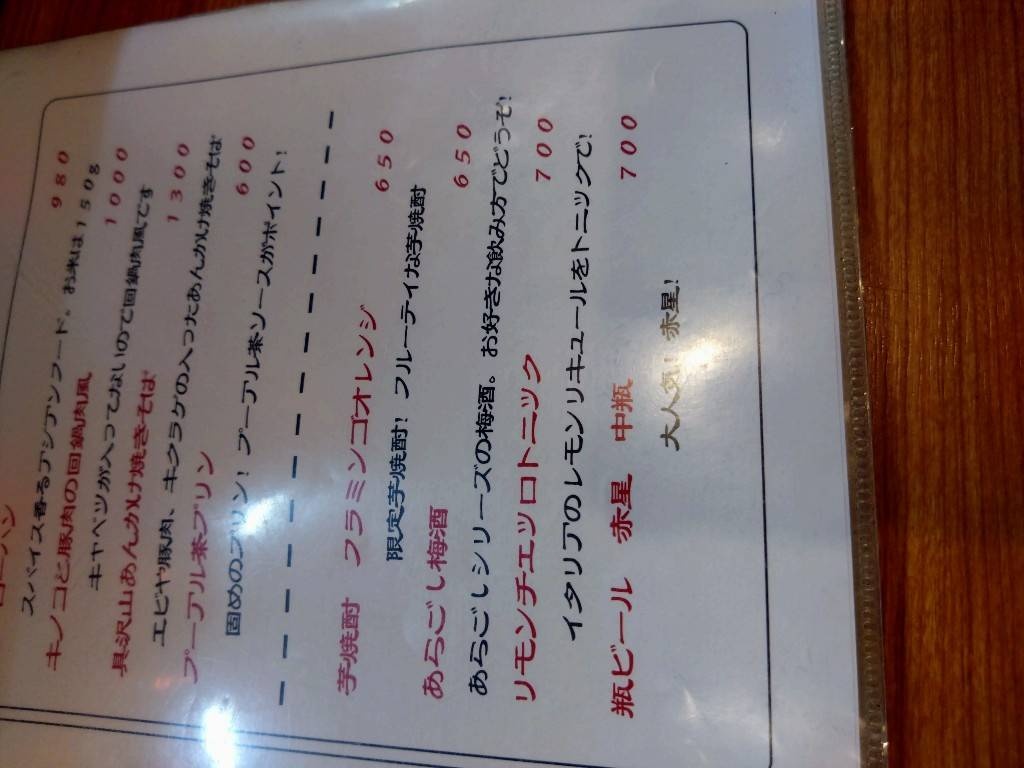 ローハン
スパイス香るアジアンフード。お米は150g
980
キノコと豚肉の回鍋肉風
キャベツが入ってないので回鍋肉風です
1000
具沢山あんかけ焼きそば
エビや豚肉、キクラゲの入ったあんかけ焼きそば
1300
プーアル茶プリン
固めのプリン!プーアル茶ソースがポイント!
600
芋焼酎 フラミンゴオレンジ
650
限定芋焼酎!フルーティな芋焼酎
あらごし梅酒
650
あらごしシリーズの梅酒。お好きな飲み方でどうぞ!
リモンチェッロトニック
700
イタリアのレモンリキュールをトニックで!
瓶ビール 赤星 中瓶
700
大人気!赤星!